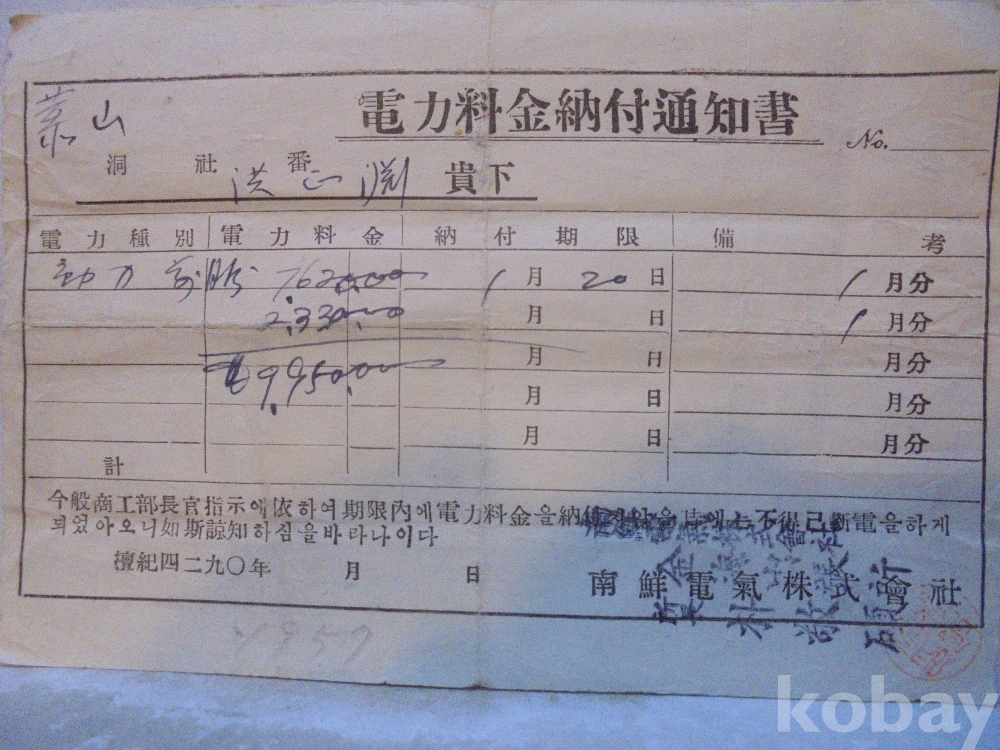 電力料金納付通知書
山
No.
洞 社 番
洪正淵 貴下
電力種別 電力料金 納付期限 備考
動力 7620.00 1月20日 1月分
2,330.00 月 日 1月分
9,950.00 月 日 月分
月 日 月分
月 日 月分
計
今般商工部長官指示에依하여期限內에電力料金을納付 不得已斷電을하게
되었아오니如斯諒知하심을바라나이다
檀紀四二九〇年 月 日
南鮮電氣株式會社
1957
kobay